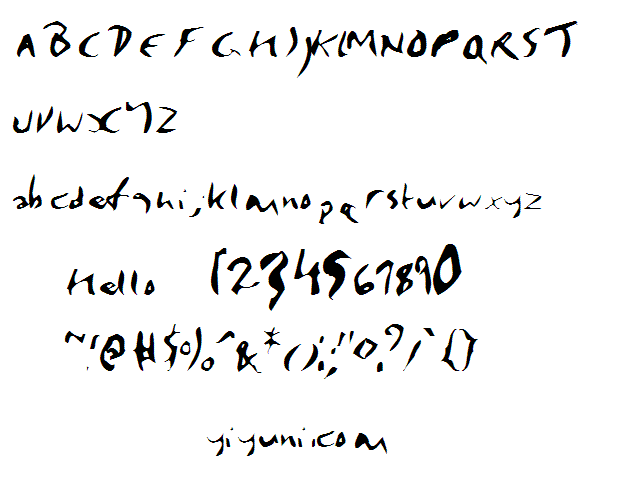 ABCDEFGHIJKLMNOPQRST
UVWXYZ
abcdefghijklmnopqrstuvwxyz
Hello 1234567890
~!@#$%^&*():;!"<>?/`{}
yiyuni.com